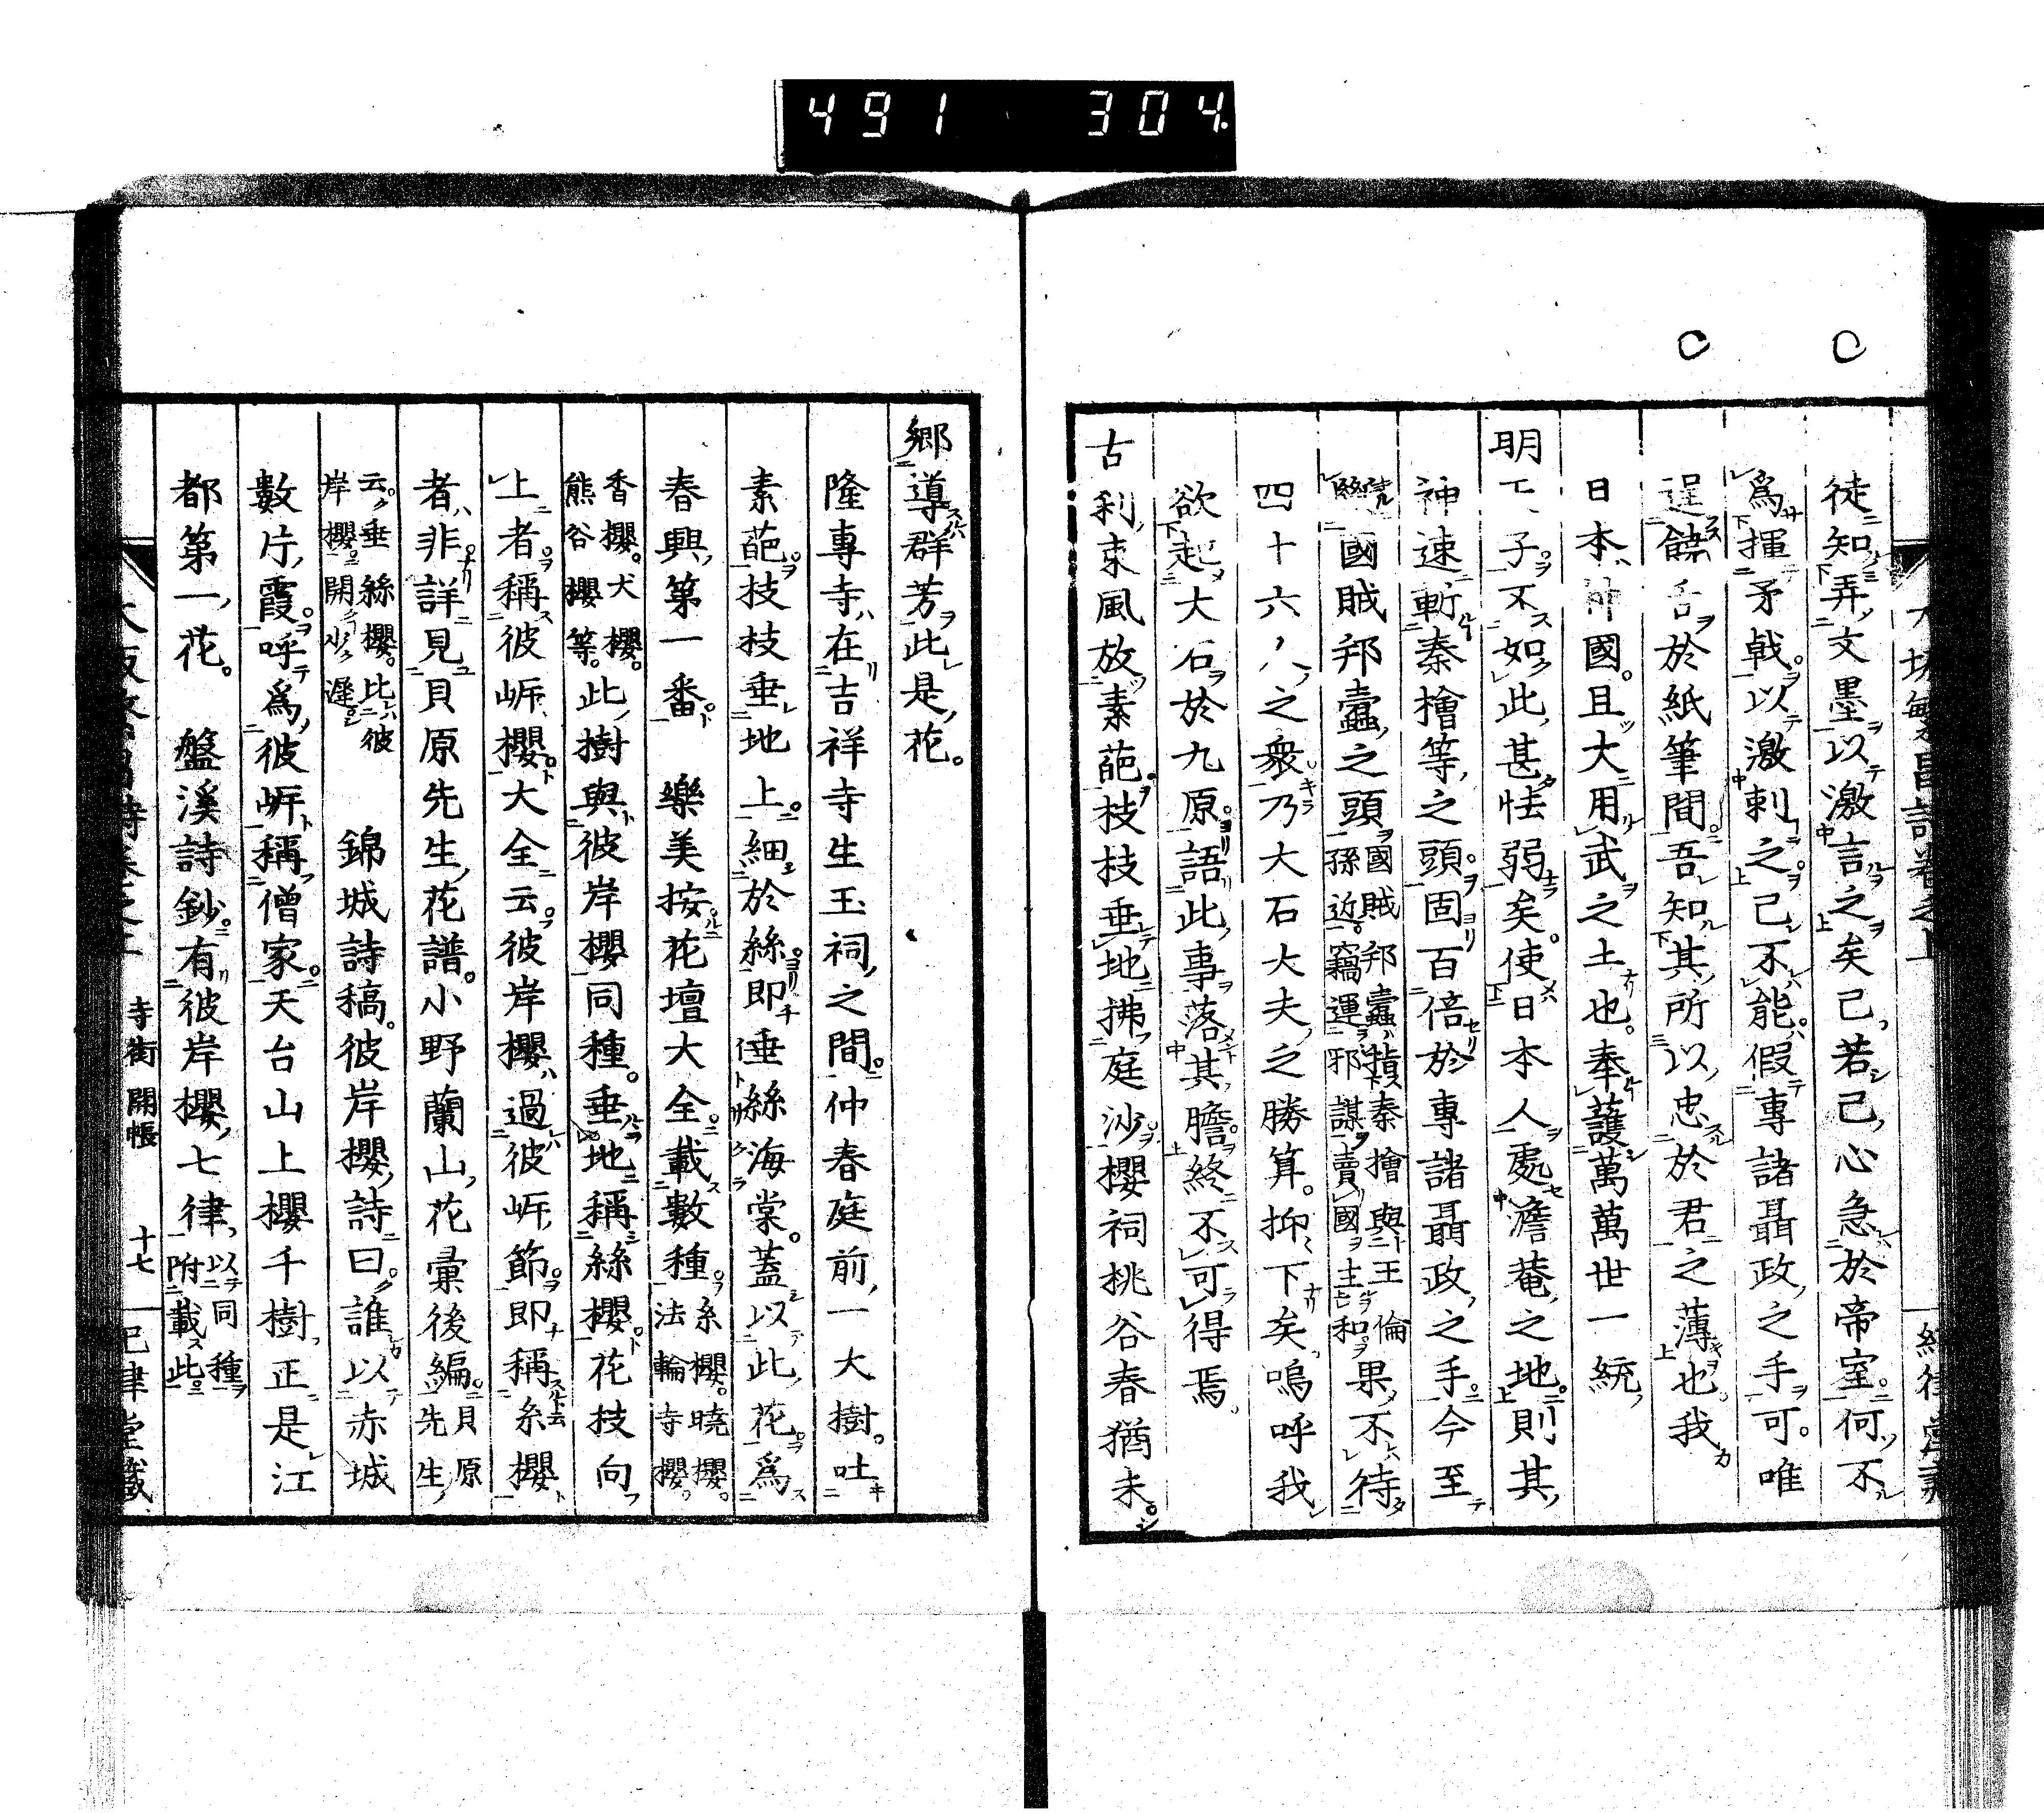 491 304
徒知弄文墨以激言之矣已若已心急於帝室何不
爲揮矛戟以激刺之已不能假專諸聶政之手可唯
逞饒舌於紙筆間吾知其所以忠於君之薄也我
日本神國且大用武之土也奉護萬萬世一統
明丁子不如此甚怯弱矣使日本人處澹菴之地則其
神速斬秦檜等之頭固百倍於專諸聶政之手今至
國賊邦蠹之頭國賊邦蠹指秦檜與王倫
孫近竊運邪謀賣國主和果不待
四十六人之衆乃大石大夫之勝算抑下矣嗚呼我
欲起大石於九原語此事落其膽終不可得焉
古刹束風放素葩枝枝垂地拂庭沙櫻祠桃谷春猶未
鄉導群芳此是花
隆專寺在吉祥寺生玉祠之間仲春庭前一大樹吐
素葩枝枝垂地上細於絲即垂絲海棠蓋以此花爲
春興第一番 樂美按花壇大全載數種糸櫻曉櫻
法輪寺櫻
香櫻犬櫻
熊谷櫻等此樹與彼岸櫻同種垂地稱絲櫻花枝向
上者稱彼岸櫻大全云彼岸櫻過彼岸節即稱糸櫻
者非詳見貝原先生花譜小野蘭山花彙後編貝原
先生
云垂絲櫻比彼
岸櫻開少遲 錦城詩稿彼岸櫻詩曰誰以赤城
數片霞呼爲彼岸稱僧家天台山上櫻千樹正是江
都第一花 盤溪詩鈔有彼岸櫻七律以同種
附載此
寺街 開帳 十七